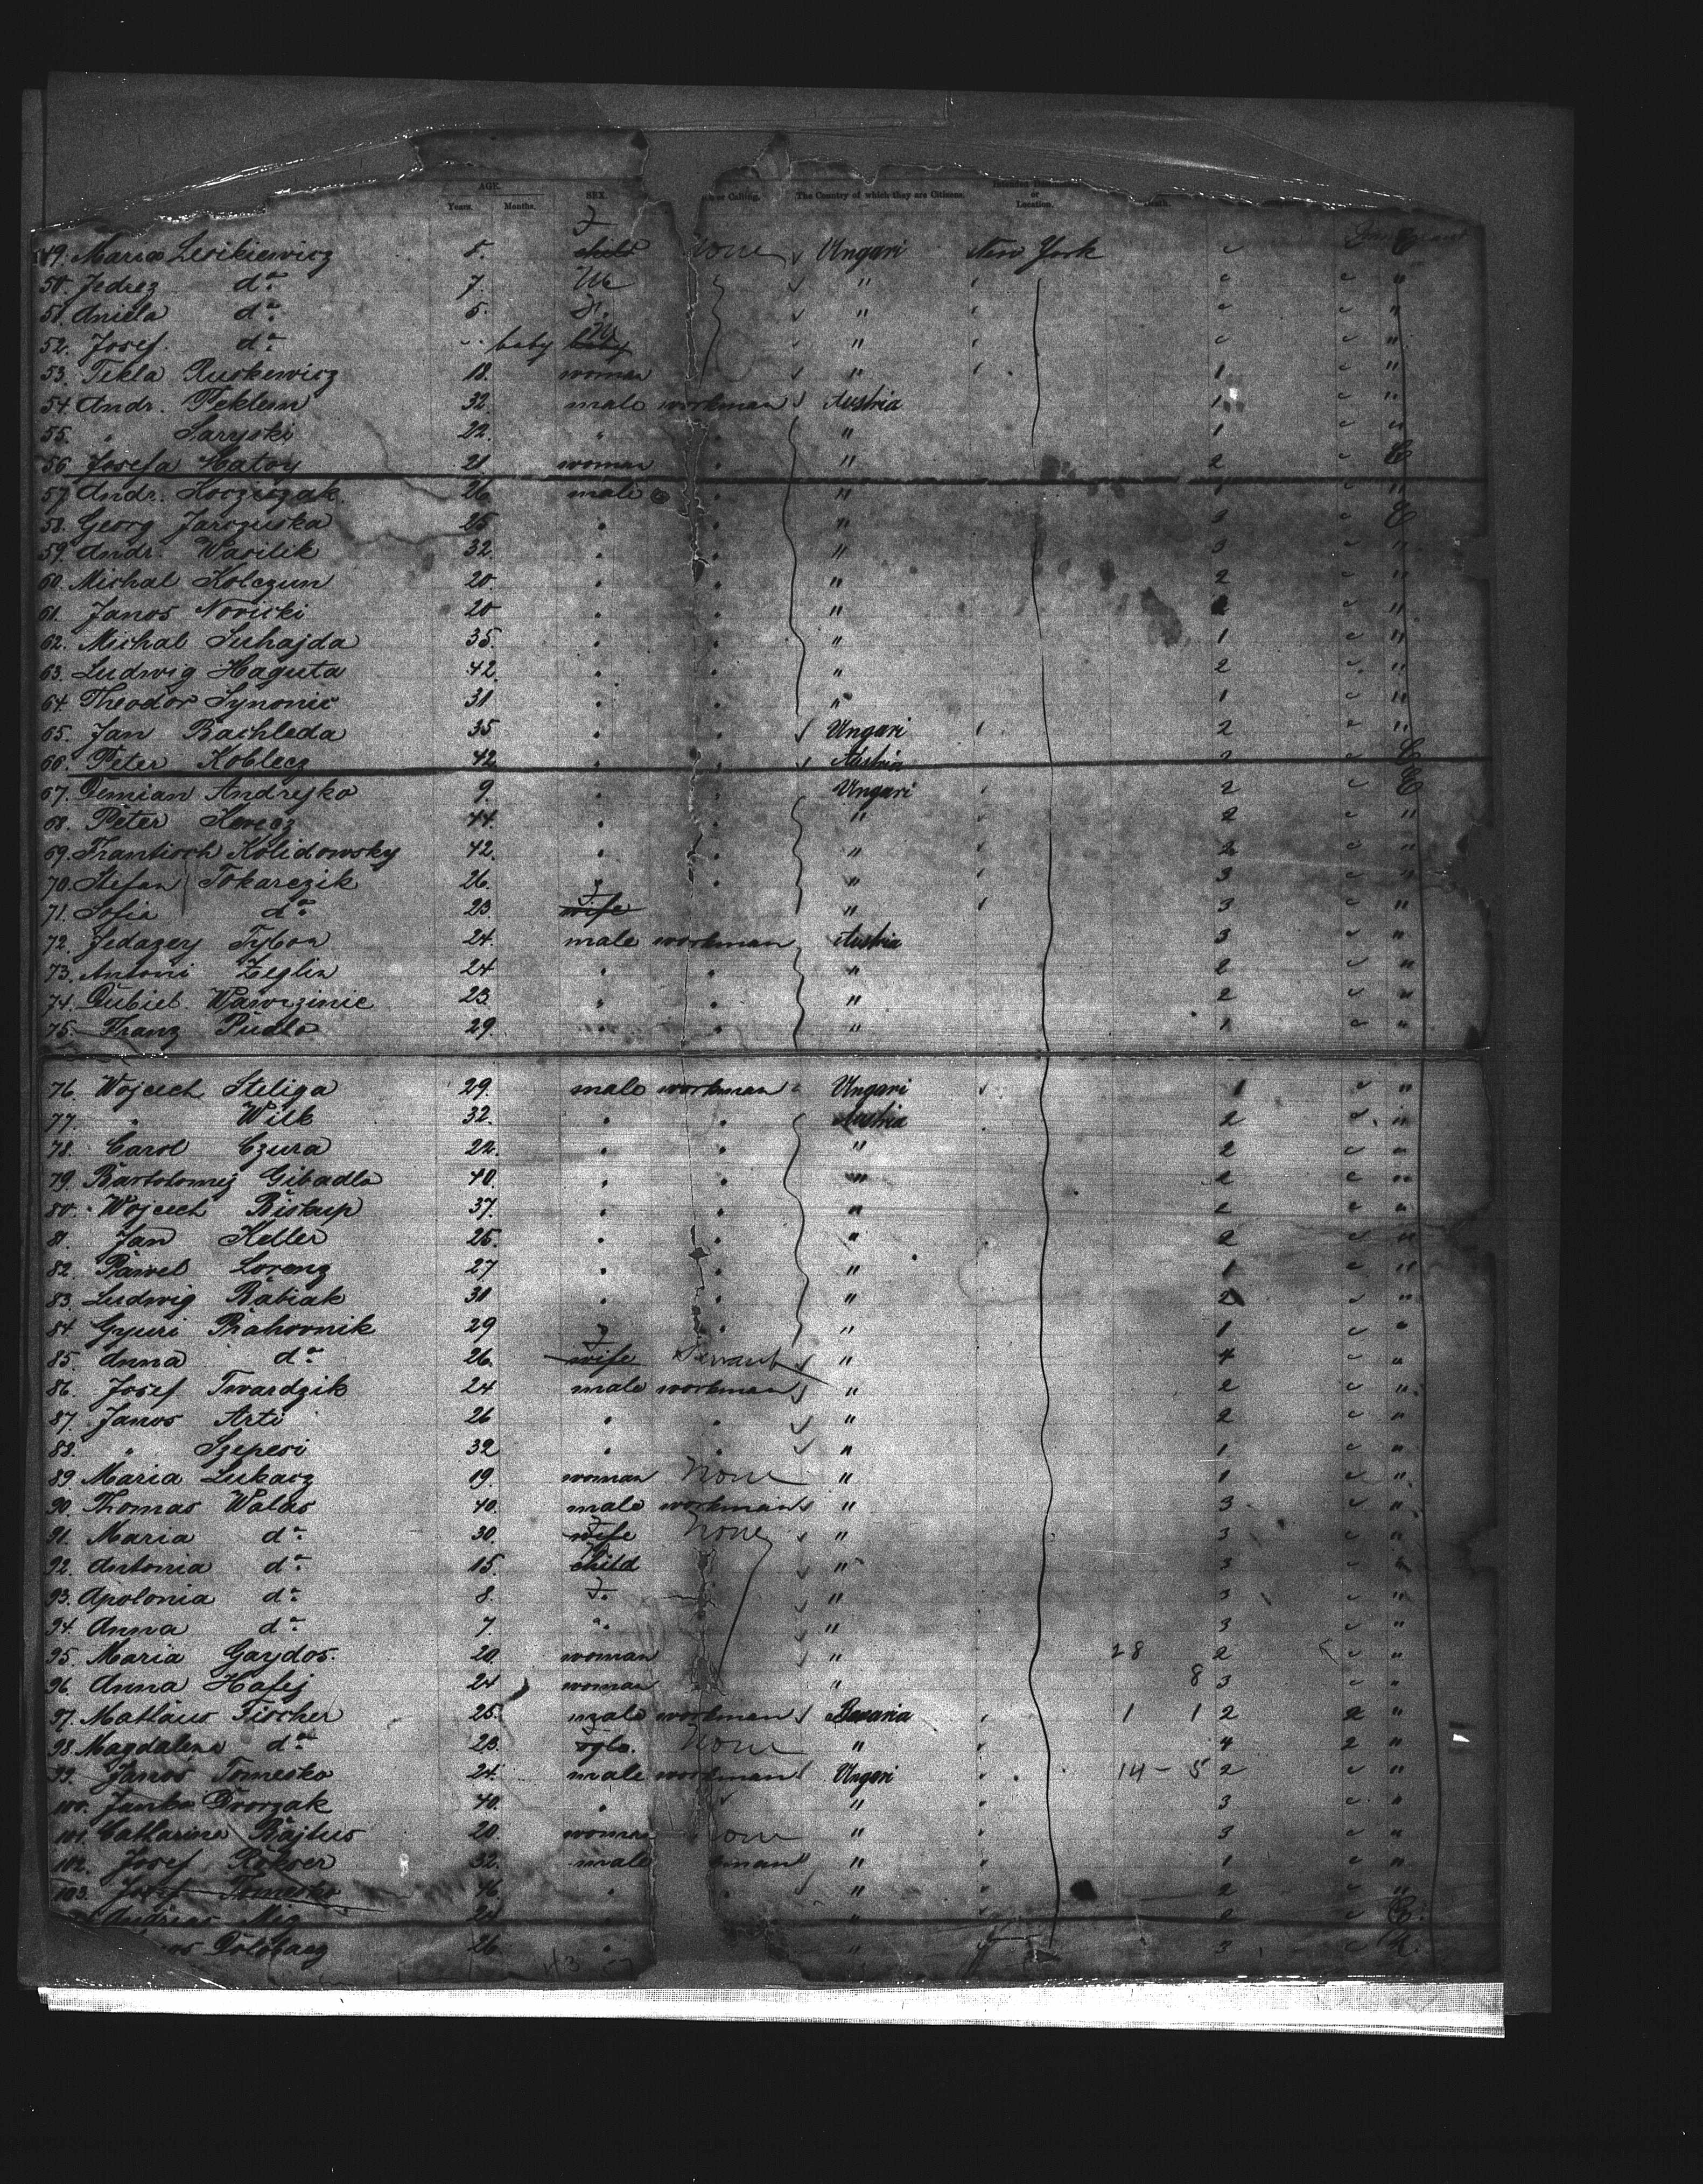 AGE. SEX. or Calling. The Country of which they are Citizens. or Location.
Years. Months.
49. Maria Lesikiewicz 8. child None Ungari New York
50. Jedrez do. 7. M "
51. Aniela do. 5. "
52. Josef do. baby baby M "
53. Tekla Ruskewicz 18. woman " 1 "
54. Andr. Peklem 32. male workman Austria 1 "
55. " Saryski 22. " " " 1 "
56. Josefa Hatoy 21 woman " " 2 E
57. Andr. Korzeszak 26 male " " 1 "
58. Georg Jarozuska 25 " " " 3 E
59. Andr. Wasilik 32. " " " 3 "
60. Michal Kolczun 20. " " " 2 "
61. Janos Noviski 20 " " " "
62. Michal Suhajda 35. " " " 1 "
63. Ludwig Haguta 42. " " " 2 "
64. Theodor Synonic 31 " " " 1 "
65. Jan Bachleda 35 " " Ungari 2 "
66. Peter Koblecz 42 " " Austria 2 E
67. Demian Andrejko 9. " " Ungari 2 E
68. Peter Kerecz 44. " " " 2 "
69. Frantisch Kolidowsky 42. " " " 2 "
70. Stefan Tokarczik 26. " " " 3 "
71. Sofia do. 23. wife " 3 "
72. Jedazey Tybon 24. male workman Austria 3 "
73. Antoni Zeglin 24 " " " 2 "
74. Dubiel Wawrzinic 23. " " " 2 "
75. Franz Pudlo 29. " " " 1 "
76. Wojciech Steliga 29. male workman Ungari 1 "
77. " Wilk 32. " " Austria 2 "
78. Carol Czura 22. " " " 2 "
79. Bartolomej Gibadlo 40. " " " 2 "
80. Wojciech Biskup 37. " " " 2 "
81. Jan Keller 25. " " " 2 "
82. Pawel Lorenz 27 " " " 1 "
83. Ludwig Babiak 31 " " " 2 "
84. Gyuri Prahovnik 29 " " " 1 "
85. Anna do. 26. wife Servant " 4 "
86. Josef Twardzik 24 male workman " 2 "
87. Janos Arti 26 " " " 2 "
88. " Szepesi 32 " " " 1 "
89. Maria Lukacz 19. woman None " 1 "
90. Thomas Walas 40. male workman " 3 "
91. Maria do. 30. wife None " 3 "
92. Antonia do. 15. child " 3 "
93. Apolonia do. 8. " 3 "
94. Anna do. 7. " " 3 "
95. Maria Gaydos. 20. woman " 28 2 "
96. Anna Hafej 24 woman " 8 3 "
97. Matlaus Fischer 25. male workman Bavaria 1 1 2 2 "
98. Magdalena do. 23. None " 4 2 "
99. Janos Tomesko 24. male workman Ungari 14 - 5 2 "
100. Janko Dvorzak 40. " " 3 "
101. Catharina Bajtus 20. woman " 3 "
102. Josef Rokoer 32. male " 1 "
103. Josef Tomesko 46 " " " 2 "
Andreas Mig 24 " " 2 E.
26 " " 3